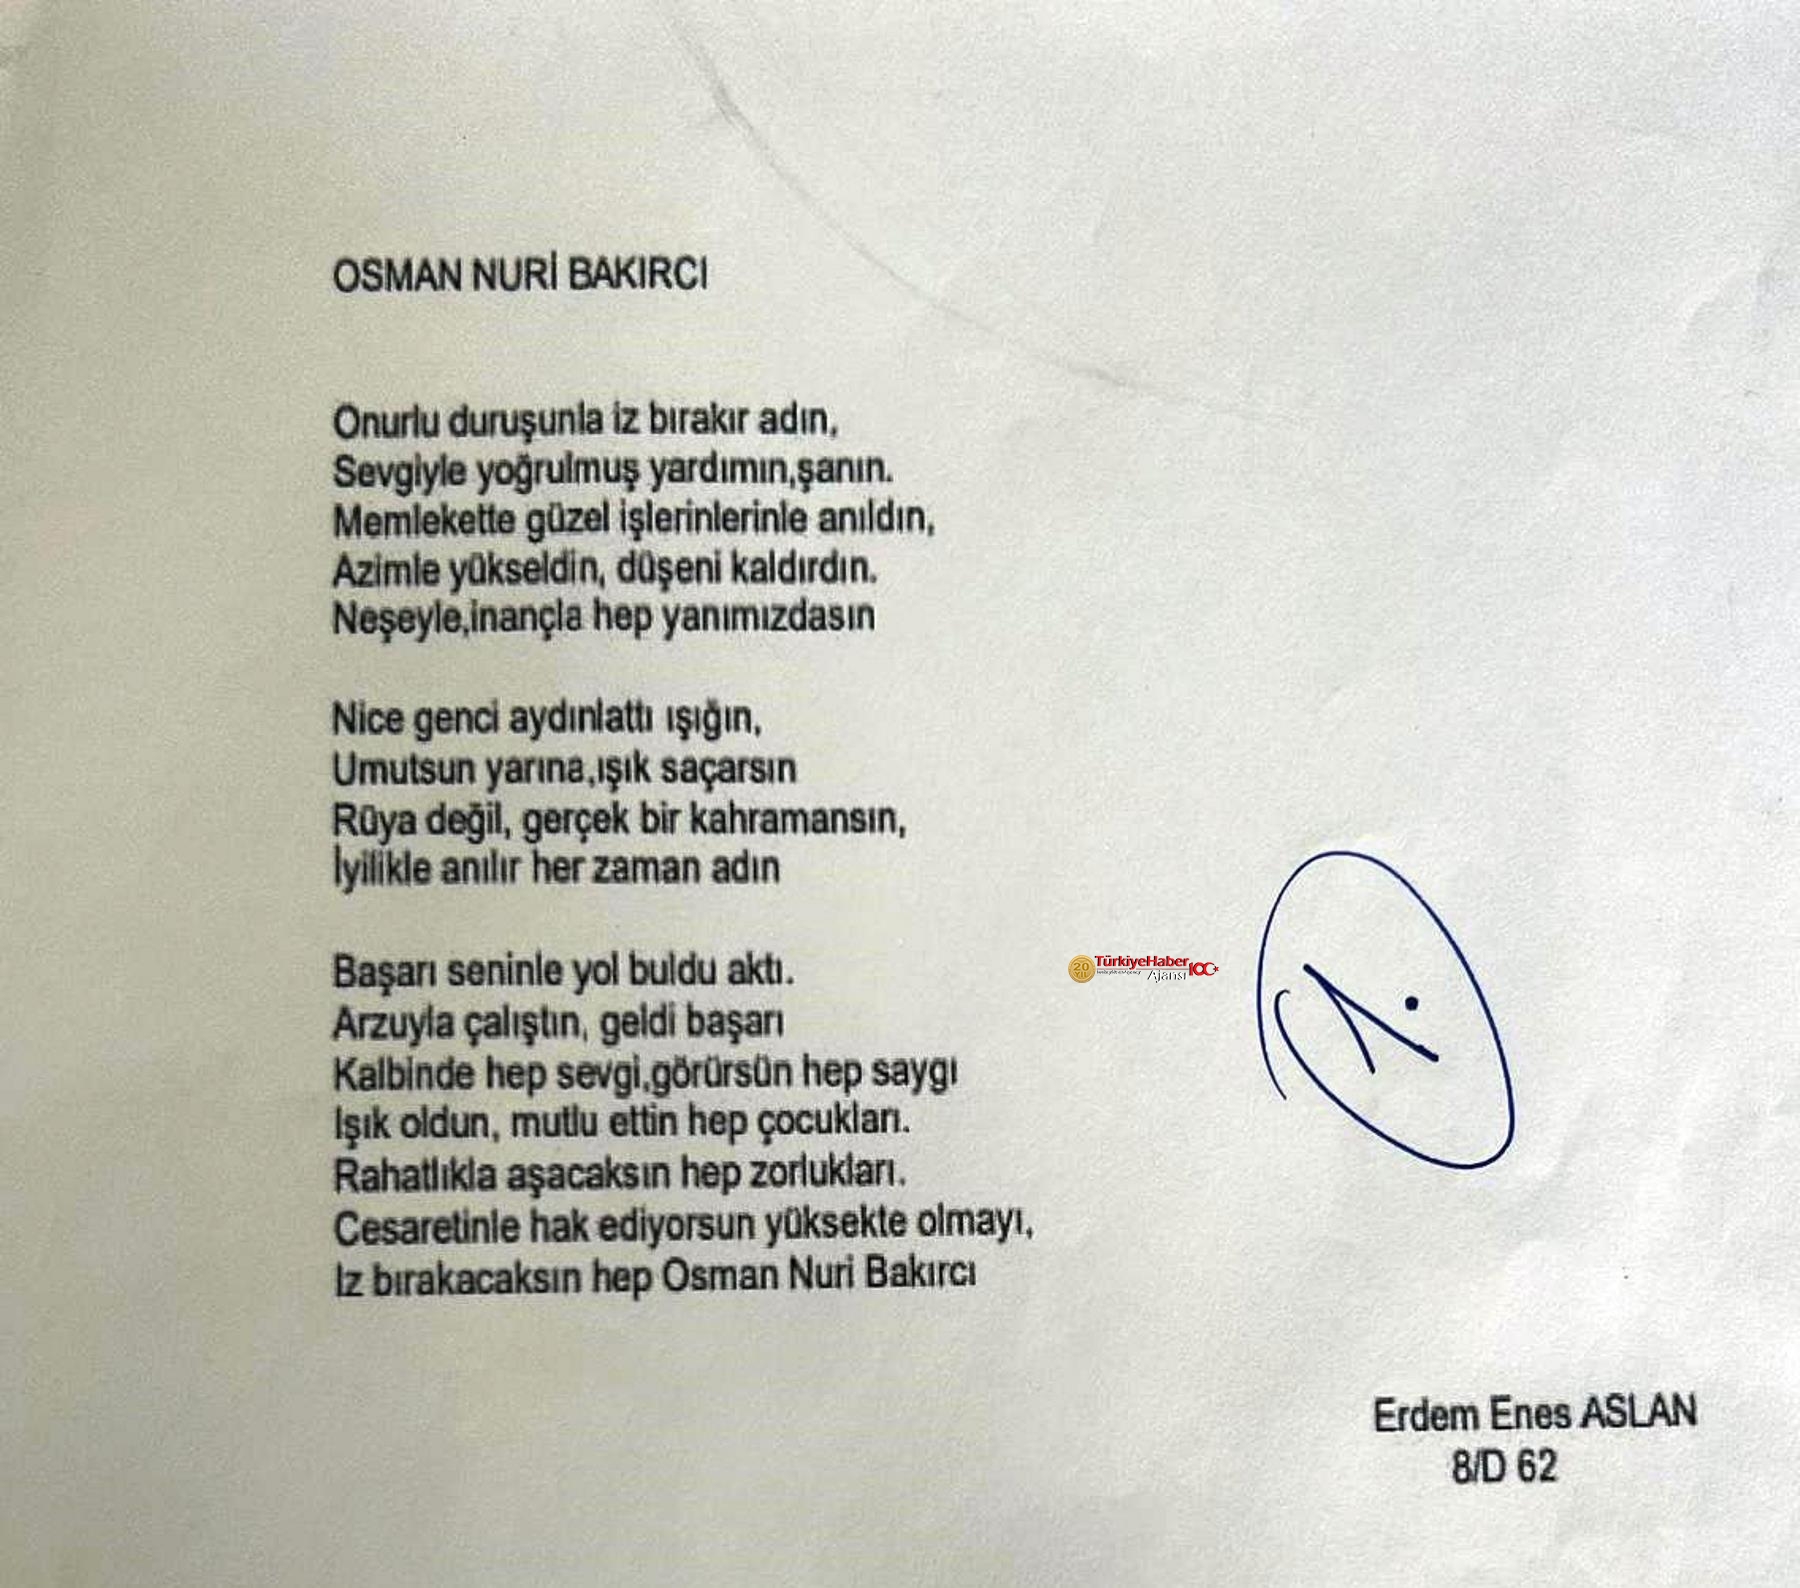 OSMAN NURİ BAKIRCI
Onurlu duruşunla iz bırakır adın,
Sevgiyle yoğrulmuş yardımın,şanın.
Memlekette güzel işlerinlerinle anıldın,
Azimle yükseldin, düşeni kaldırdın.
Neşeyle,inançla hep yanımızdasın
Nice genci aydınlattı ışığın,
Umutsun yarına,ışık saçarsın
Rüya değil, gerçek bir kahramansın,
İyilikle anılır her zaman adın
Başarı seninle yol buldu aktı.
Arzuyla çalıştın, geldi başarı
Kalbinde hep sevgi,görürsün hep saygı
Işık oldun, mutlu ettin hep çocukları.
Rahatlıkla aşacaksın hep zorlukları.
Cesaretinle hak ediyorsun yüksekte olmayı,
Iz bırakacaksın hep Osman Nuri Bakırcı
20 YIL TürkiyeHaber Ajansı 100
1.
Erdem Enes ASLAN
8/D 62